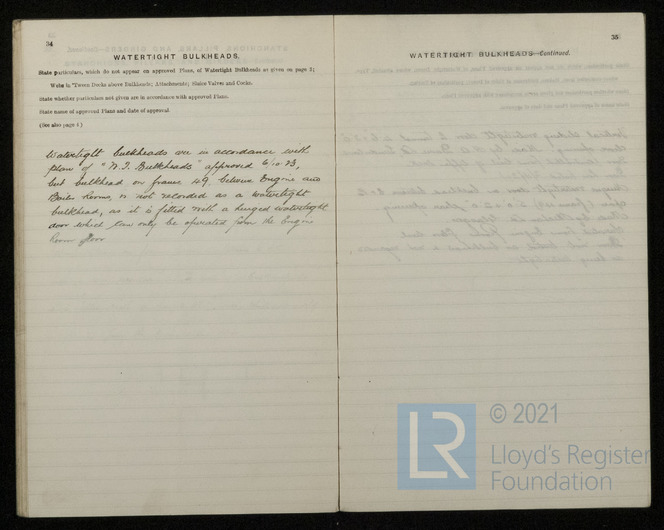 34
WATERTIGHT BULKHEADS.
State particulars, which do not appear on approved Plans, of Watertight Bulkheads as given on page 3;
Webs in 'Tween Decks above Bulkheads; Attachments; Sluice Valves and Cocks.
State whether particulars not given are in accordance with approved Plans.
State name of approved Plans and date of approval.
(See also page 4)
Watertight bulkheads are in accordance with
plan of "W.T. Bulkheads" approved 6/10/23,
but bulkhead on frame 49 between Engine and
Boiler Rooms, is not recorded as a watertight
bulkhead, as it is fitted with a hinged watertight
door which can only be operated from the Engine
Room floor
35
WATERTIGHT BULKHEADS—Continued.
LR
© 2021
Lloyd's Register
Foundation